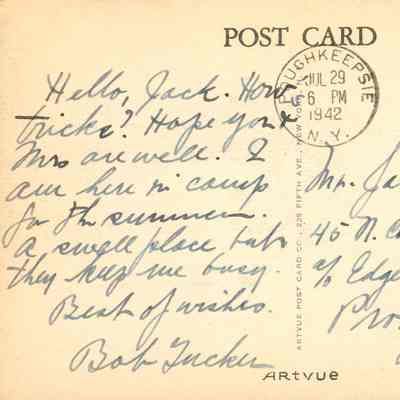 POST CARD
POUGHKEEPSIE
JUL 29
6 PM
1942
N.Y.
Hello, Jack. How
tricks? Hope you &
Mrs are well. I
am here in camp
for the summer.
A swell place but
they keep me busy.
Best of wishes.
Bob Tucker
Mr. Ja
45 N. C
c/o Edge
Pro
ARTVUE POST CARD CO., 225 FIFTH AVE., NEW YORK, N.Y.
ARTVUE